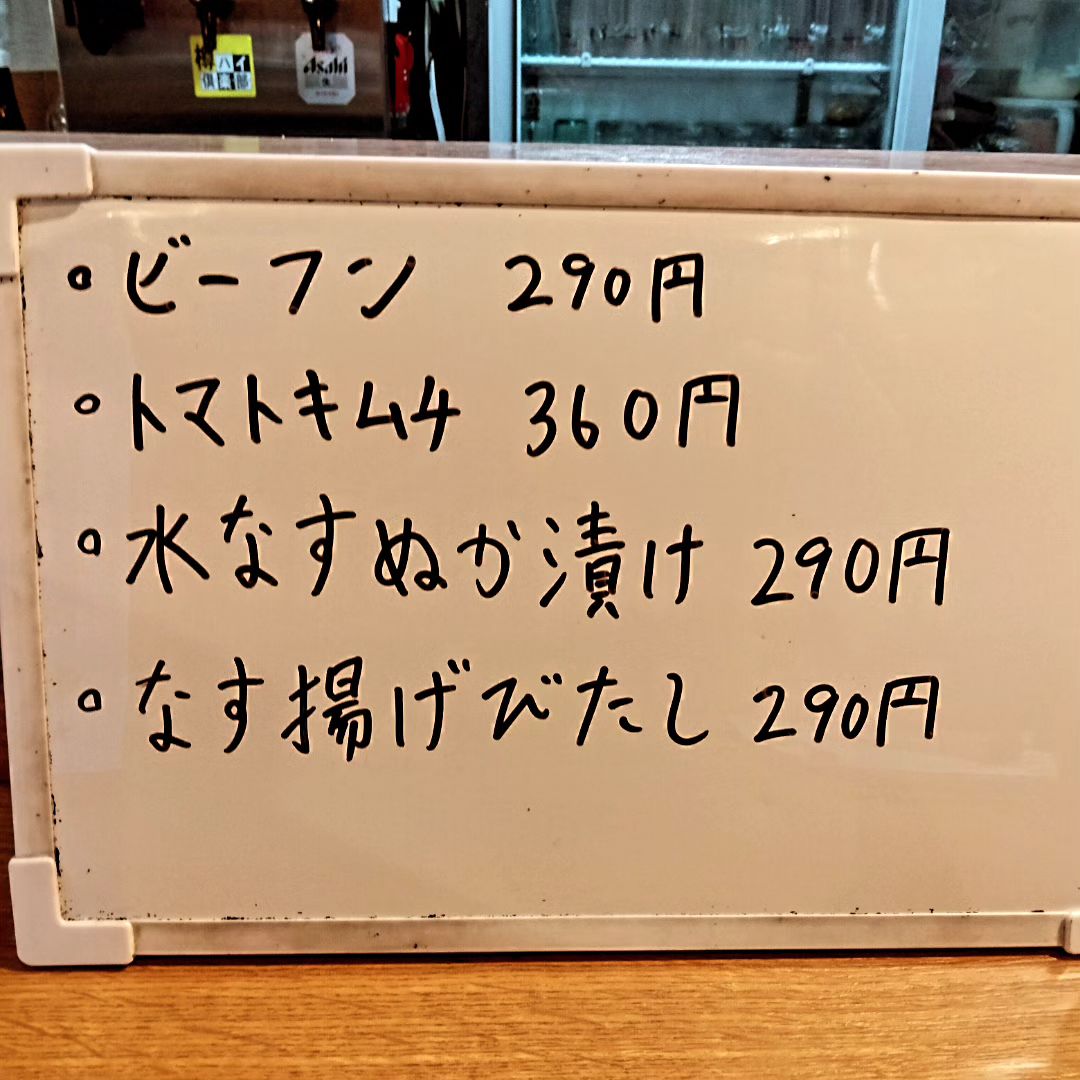 樽ハイ
倶楽部
Asahi
・ビーフン 290円
・トマトキムチ 360円
・水なすぬか漬け 290円
・なす揚げびたし 290円